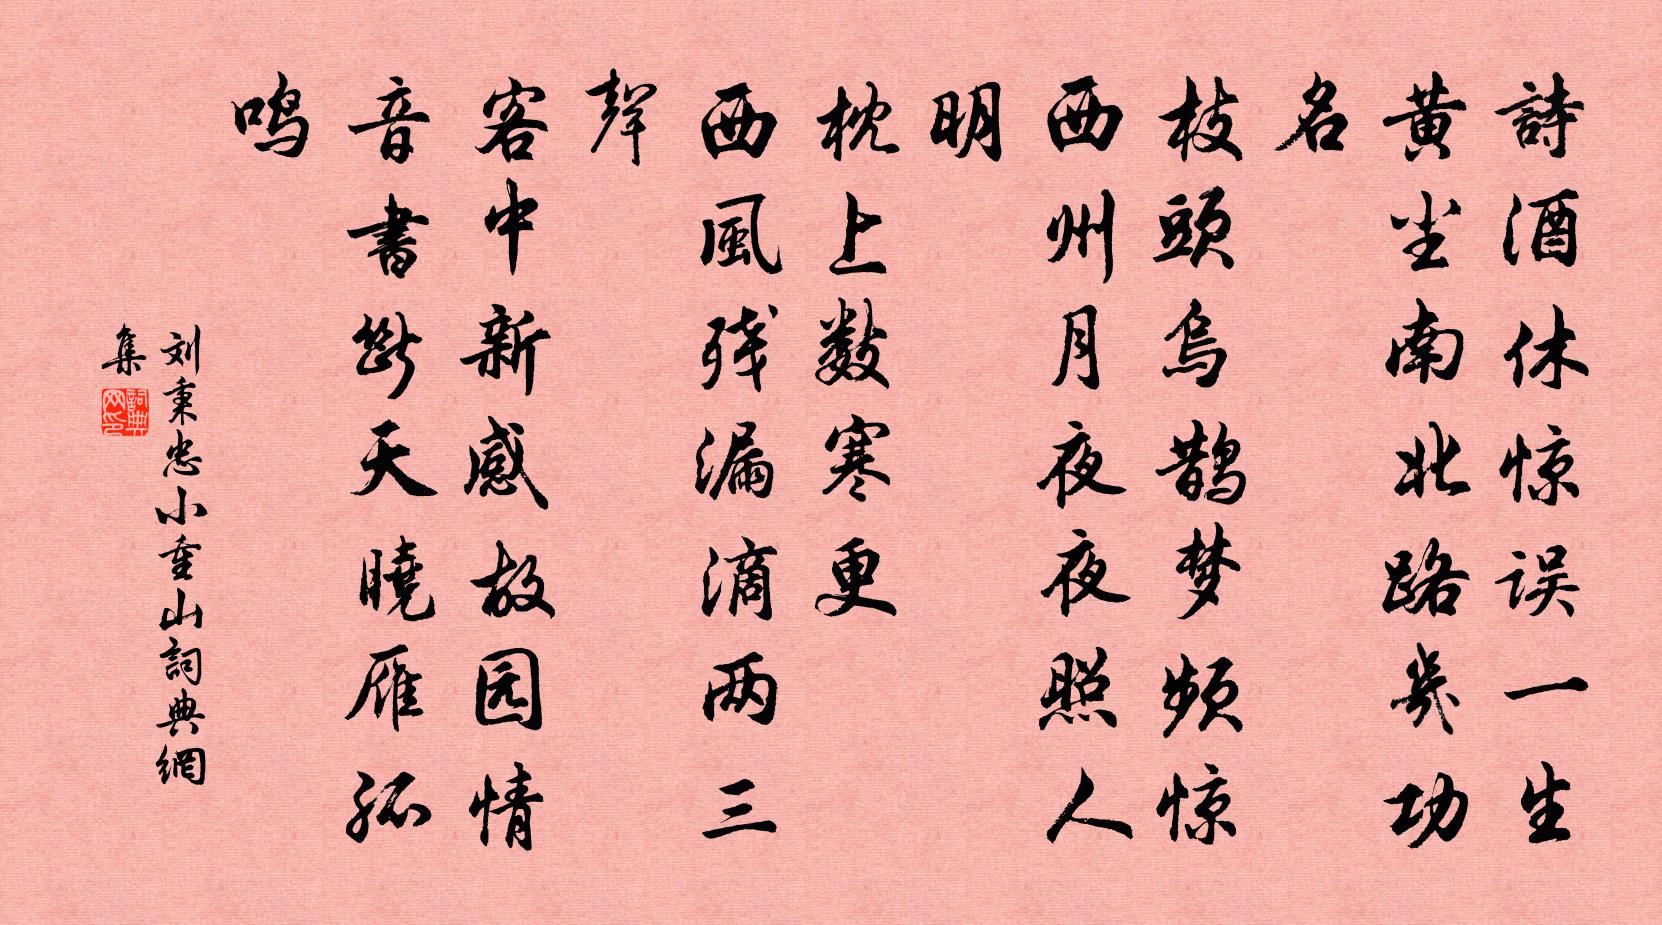 詩酒休惊误一生
黄尘南北路几功
名
枝頭烏鹊梦频惊
西州月夜夜照人
明
枕上数寒更
西風残漏滴两三
聲
客中新感故园情
音書断天曉雁孤
鸣
刘秉忠小重山詞典網
集
詞典网印